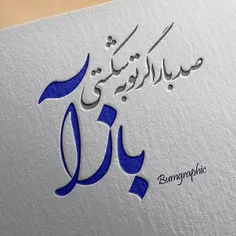 صد بار اگر توبه شکستی
بازآ
Bumgraphic